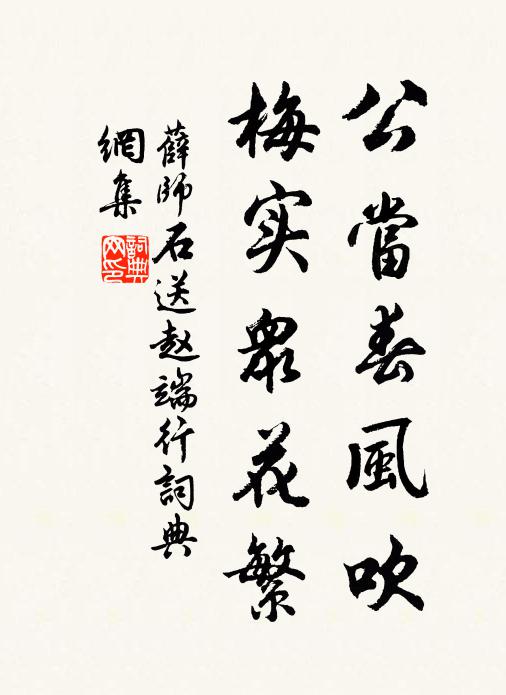 公當春風吹
梅实眾花繁
薛師石送赵端行詞典
網集
詞典网印